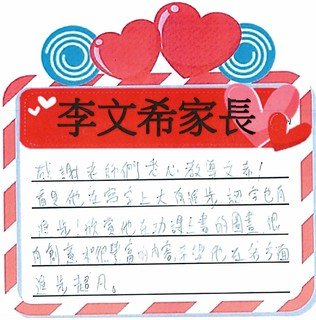 李文希家長
感謝老師們悉心教導文希!
看見他在寫字上大有進步,認字也有
進步!欣賞他在功課上畫的圖畫很
有創意和他豐富的內容,希望他在各方面
進步超凡。